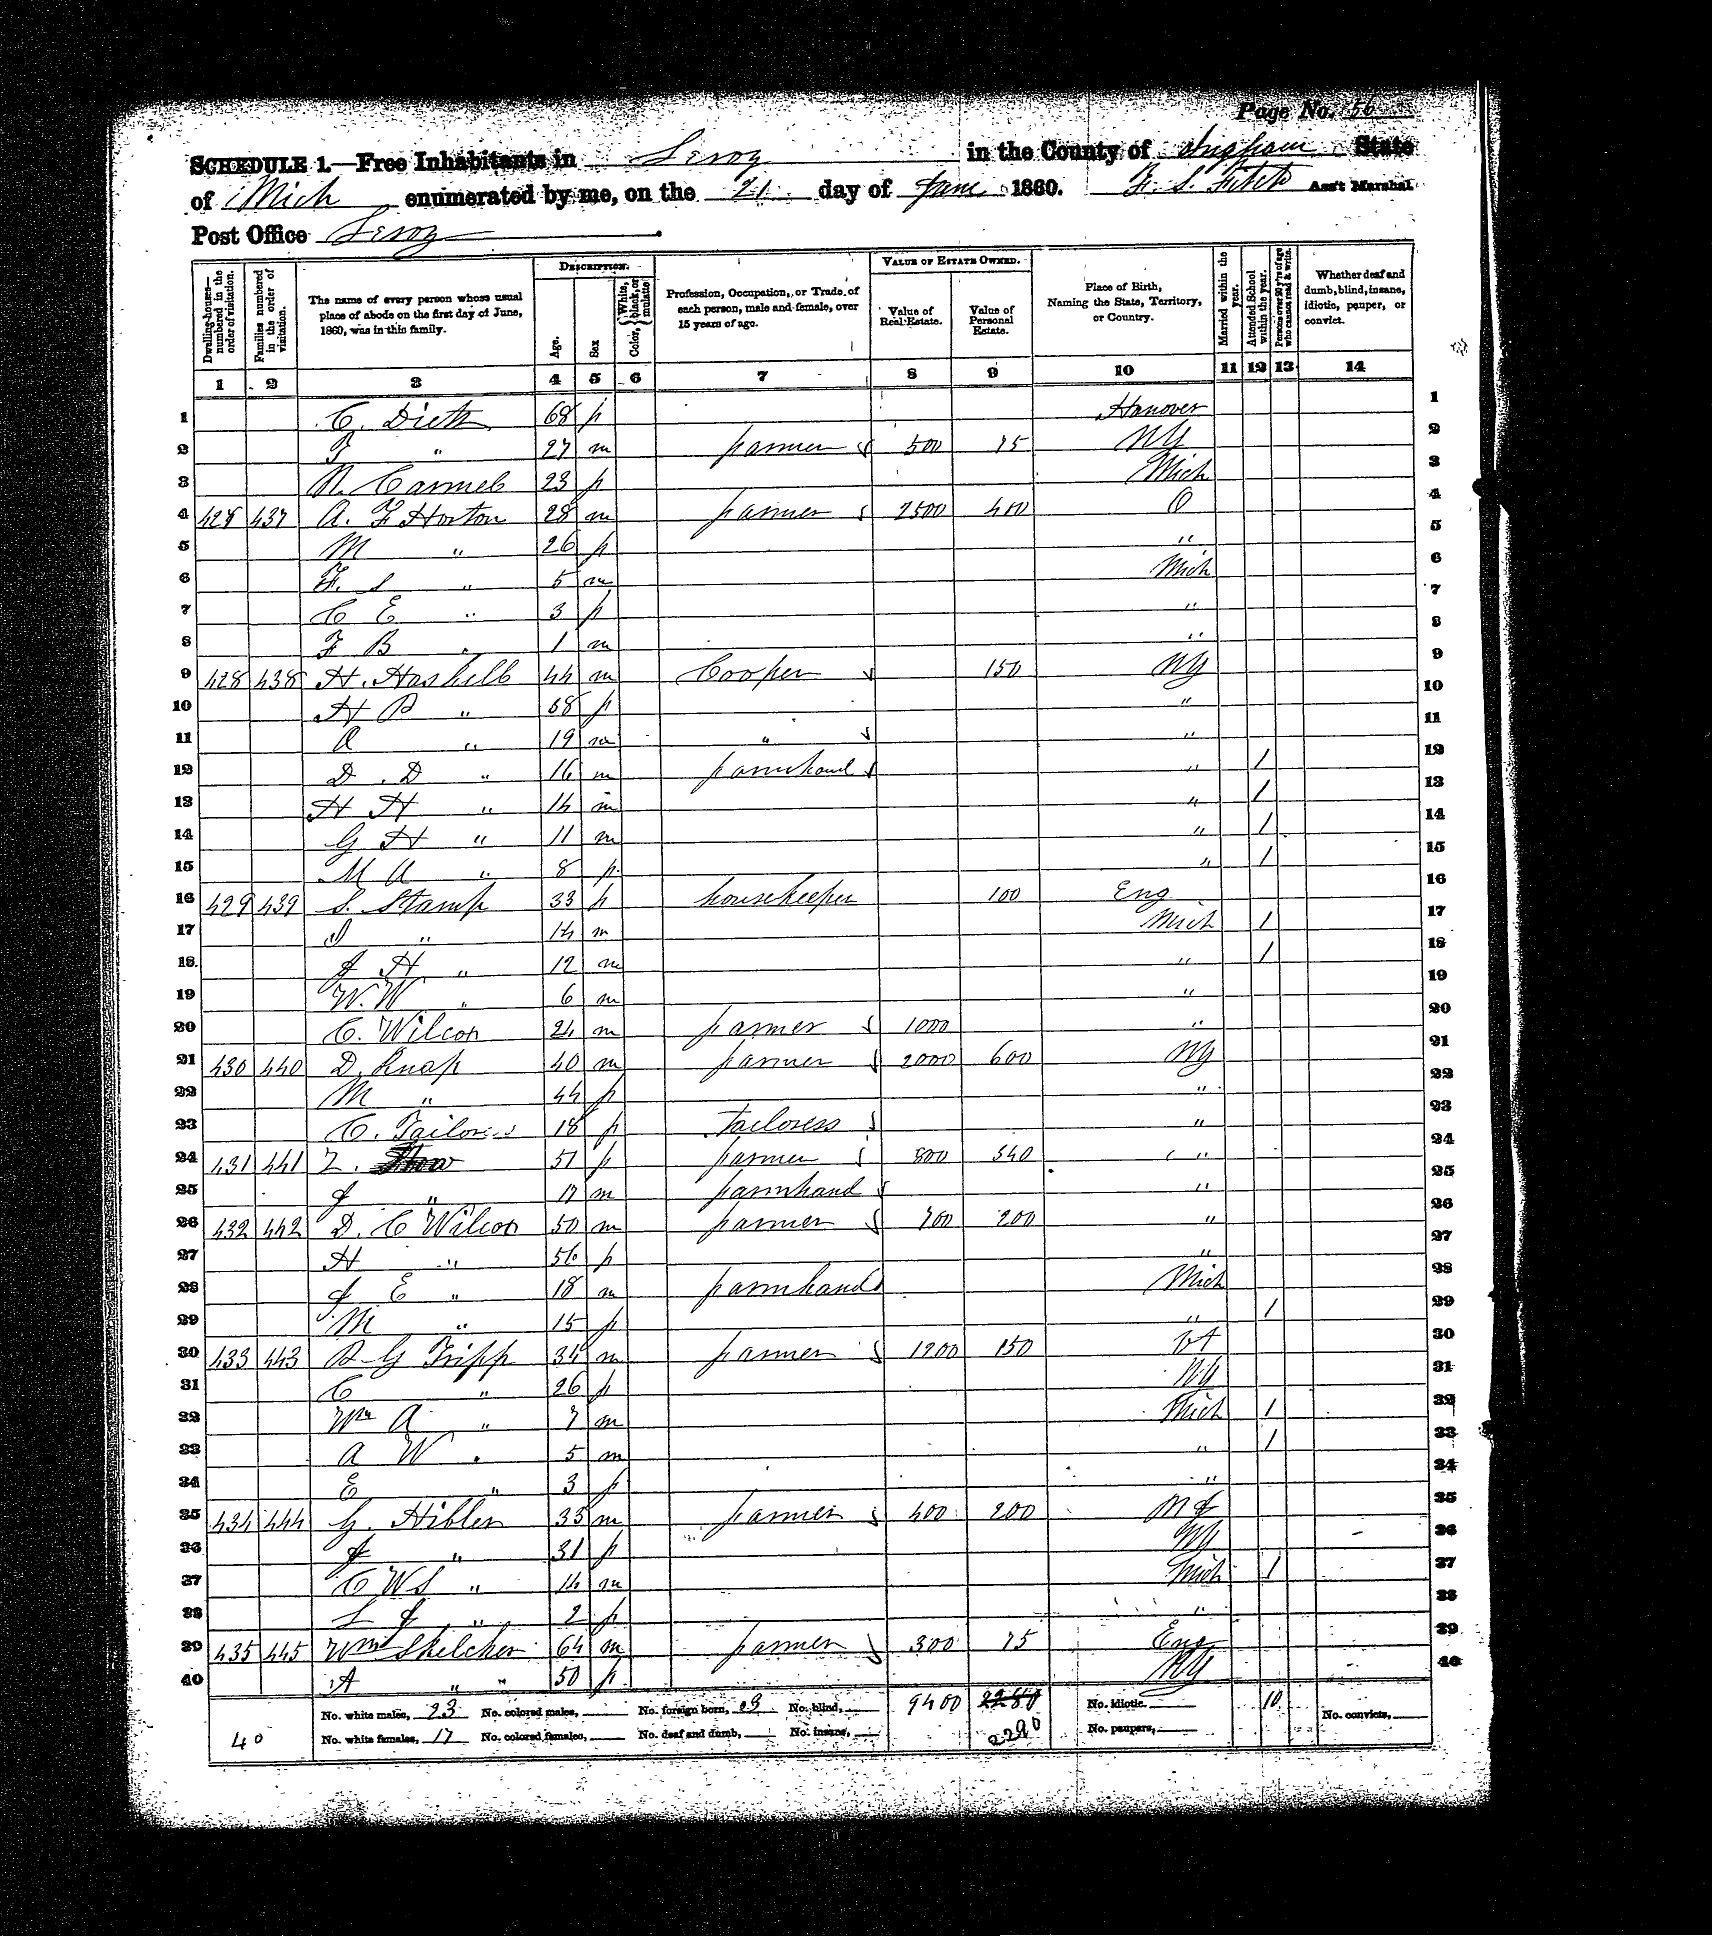 Page No. 56
SCHEDULE 1.—Free Inhabitants in Leroy in the County of Ingham State
of Mich enumerated by me, on the 21 day of June 1860. F. S. Fitch Ass't Marshal
Post Office Leroy
DESCRIPTION. VALUE OF ESTATE OWNED.
Dwelling-houses—numbered in the order of visitation. Families numbered in the order of visitation. The name of every person whose usual place of abode on the first day of June, 1860, was in this family. Age. Sex Color, {White, black, or mulatto. Profession, Occupation, or Trade of each person, male and female, over 15 years of age. Value of Real Estate. Value of Personal Estate. Place of Birth, Naming the State, Territory, or Country. Married within the year. Attended School within the year. Persons over 20 y'rs of age who cannot read & write. Whether deaf and dumb, blind, insane, idiotic, pauper, or convict.
1 2 3 4 5 6 7 8 9 10 11 12 13 14
1 C. Dietz 68 f Hanover 1
2 F " 27 m farmer 500 75 NY 2
3 N. 23 f Mich 3
4 427 437 A. F Horton 28 m farmer 2500 400 O 4
5 M " 26 f " 5
6 F. S " 5 m Mich 6
7 C E " 3 f " 7
8 F B " 1 m " 8
9 428 438 H. Haskell 44 m Cooper 150 NY 9
10 H " 58 f " 10
11 A " 19 m " " 11
12 D. D " 16 m farmhand " 1 12
13 H H " 14 m " 1 13
14 G H " 11 m " 1 14
15 M A " 8 f " 1 15
16 429 439 S. Stamp 33 f housekeeper 100 Eng 16
17 " 14 m Mich 1 17
18 J H " 12 m " 1 18
19 W. W " 6 m " 19
20 C. Wilcox 24 m farmer 1000 " 20
21 430 440 D. Knap 40 m farmer 2000 600 NY 21
22 M " 44 f " 22
23 C. Tailoress 18 f Tailoress " 23
24 431 441 Z. 51 f farmer 800 340 " 24
25 J " 17 m farmhand " 25
26 432 442 D. C Wilcox 50 m farmer 700 200 " 26
27 H " 56 f " 27
28 J E " 18 m farmhand Mich 28
29 M " 15 f " 1 29
30 433 443 G Tripp 34 m farmer 1200 150 Vt 30
31 C " 26 f NY 31
32 Wm A " 7 m Mich 1 32
33 A W " 5 m " 1 33
34 E " 3 f " 34
35 434 444 G. Hibler 35 m farmer 400 200 N J 35
36 J " 31 f NY 36
37 C W S " 14 m Mich 1 37
38 L J " 2 f " 38
39 435 445 Wm Skelcher 64 m farmer 300 75 Eng 39
40 A " " 50 f NY 40
40 No. white males, 23 No. colored males, No. foreign born, 03 No. blind, 9400 2280 No. idiotic. 10 No. convicts,
No. white females, 17 No. colored females, No. deaf and dumb, No. insane, 2290 No. paupers,